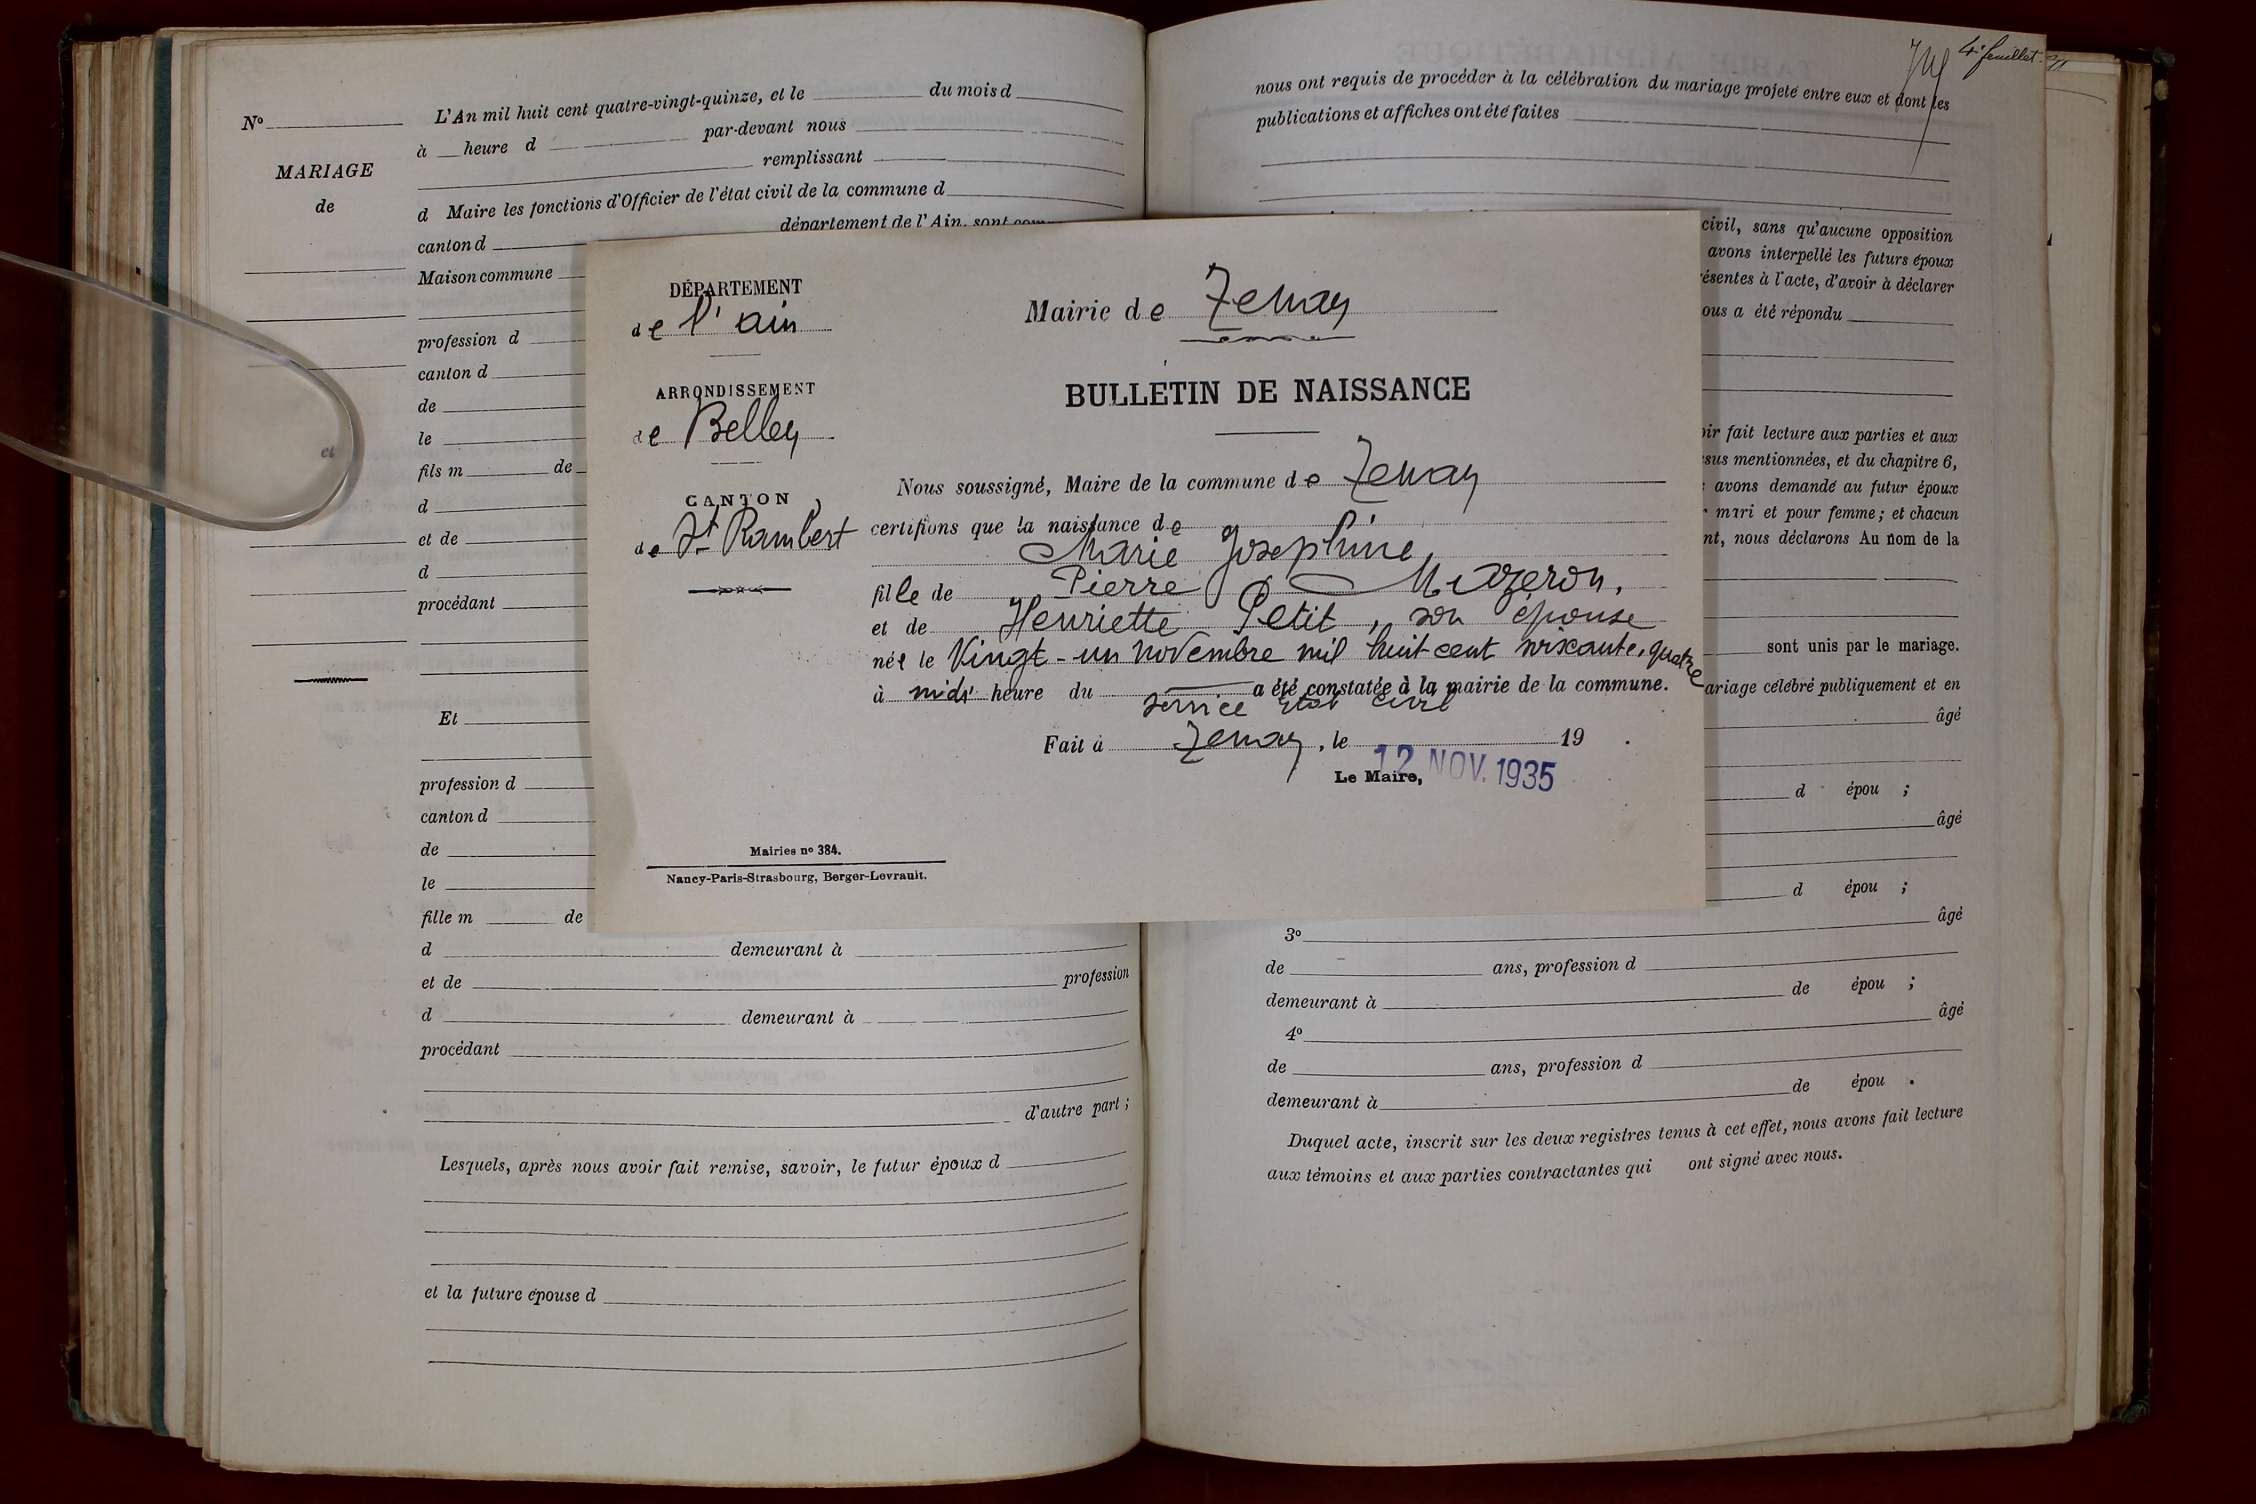 Nº
MARIAGE
de
et
L'An mil huit cent quatre-vingt-quinze, et le du mois d
à heure d par-devant nous
remplissant
d Maire les fonctions d'Officier de l'état civil de la commune d
canton d département de l'Ain, sont com
Maison commune
profession d
canton d
de
le
fils m de
d
et de
d
procédant
Et
profession d
canton d
de
le
fille m de
d demeurant à
et de profession
d demeurant à
procédant
d'autre part ;
Lesquels, après nous avoir fait remise, savoir, le futur époux d
et la future épouse d
DÉPARTEMENT
de l'ain
ARRONDISSEMENT
de Belley
CANTON
de St Rambert
Mairies nº 384.
Nancy-Paris-Strasbourg, Berger-Levrault.
Mairie de Tenay
BULLETIN DE NAISSANCE
Nous soussigné, Maire de la commune de Tenay
certifions que la naissance de
Marie Joséphine
fille de Pierre
et de Henriette Petit, son épouse
née le Vingt-un novembre mil huit cent soixante-quatre
à midi heure du a été constatée à la mairie de la commune.
service Etat civil
Fait à Tenay, le 19 .
12 NOV. 1935
Le Maire,
4e feuillet
nous ont requis de procéder à la célébration du mariage projeté entre eux et dont les
publications et affiches ont été faites
civil, sans qu'aucune opposition
avons interpellé les futurs époux
résentes à l'acte, d'avoir à déclarer
ous a été répondu
oir fait lecture aux parties et aux
sus mentionnées, et du chapitre 6,
avons demandé au futur époux
mari et pour femme ; et chacun
nt, nous déclarons Au nom de la
sont unis par le mariage.
ariage célébré publiquement et en
âgé
d épou ;
âgé
d épou ;
3º âgé
de ans, profession d
demeurant à de épou ;
4º âgé
de ans, profession d
demeurant à de épou .
Duquel acte, inscrit sur les deux registres tenus à cet effet, nous avons fait lecture
aux témoins et aux parties contractantes qui ont signé avec nous.